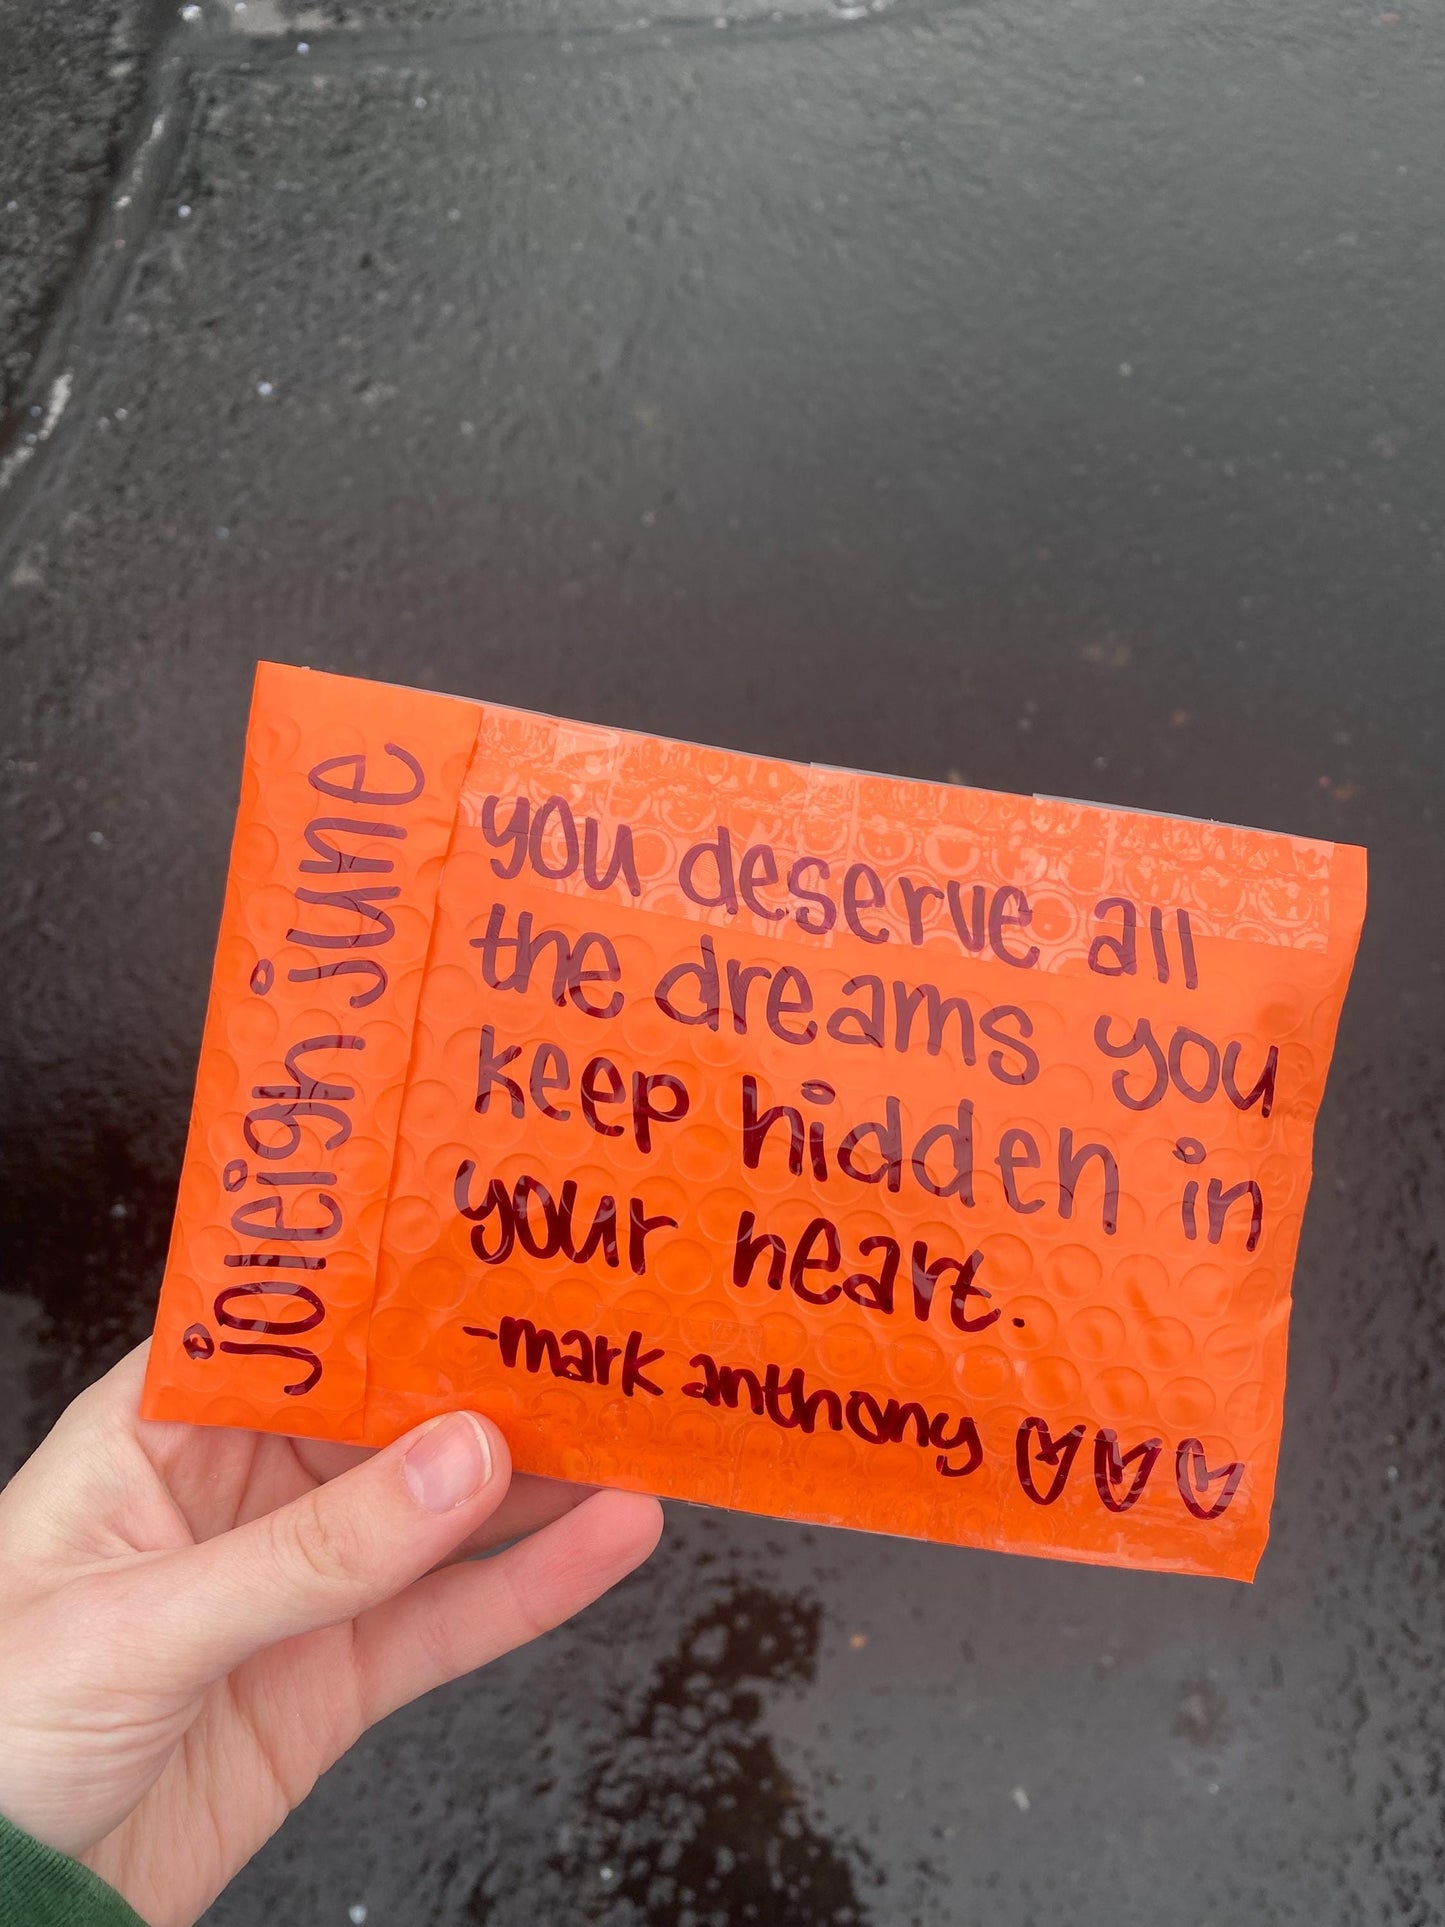 joleigh june
you deserve all
the dreams you
keep hidden in
your heart.
-mark anthony ♡♡♡